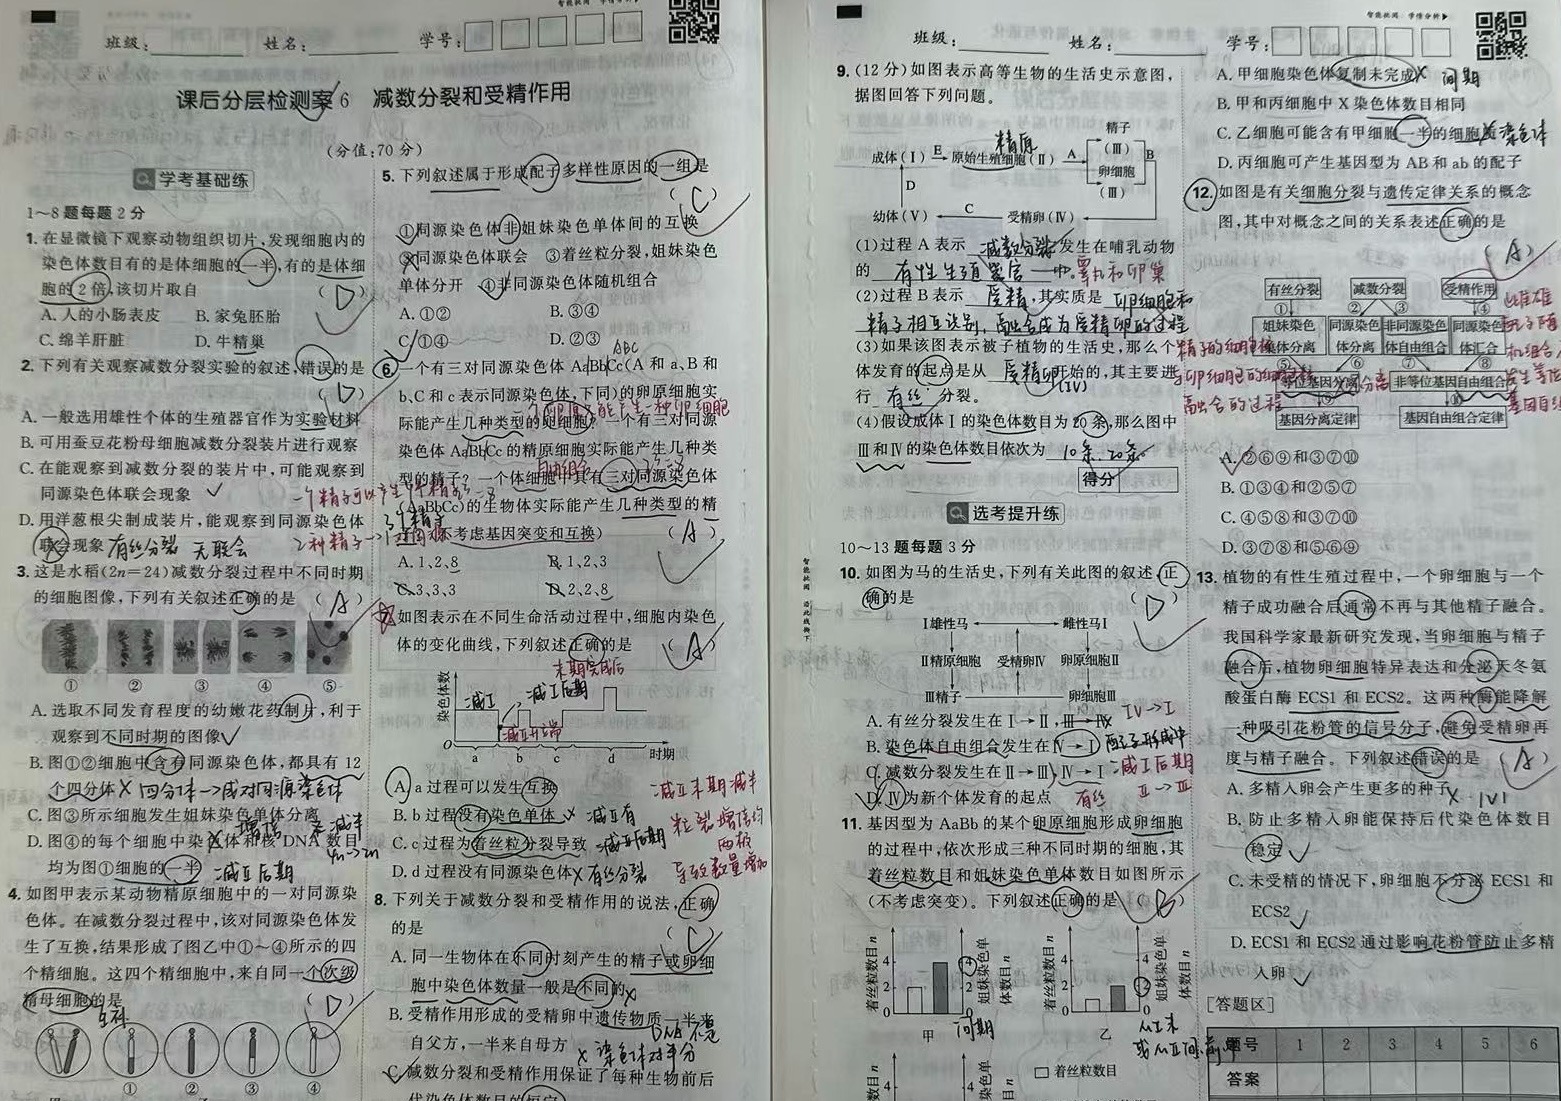 智能批阅 学情分析
班级: 姓名: 学号:
课后分层检测案 6 减数分裂和受精作用
(分值:70 分)
学考基础练
1～8 题每题 2 分
1. 在显微镜下观察动物组织切片,发现细胞内的
染色体数目有的是体细胞的一半,有的是体细
胞的 2 倍,该切片取自 (D)
A. 人的小肠表皮 B. 家兔胚胎
C. 绵羊肝脏 D. 牛精巢
2. 下列有关观察减数分裂实验的叙述,错误的是
(D)
A. 一般选用雄性个体的生殖器官作为实验材料
B. 可用蚕豆花粉母细胞减数分裂装片进行观察
C. 在能观察到减数分裂的装片中,可能观察到
同源染色体联会现象
D. 用洋葱根尖制成装片,能观察到同源染色体
联会现象 有丝分裂 无联会
3. 这是水稻(2n=24)减数分裂过程中不同时期
的细胞图像,下列有关叙述正确的是 (A)
① ② ③ ④ ⑤
A. 选取不同发育程度的幼嫩花药制片,利于
观察到不同时期的图像
B. 图①②细胞中含有同源染色体,都具有 12
个四分体 四分体→成对同源染色体
C. 图③所示细胞发生姐妹染色单体分离
D. 图④的每个细胞中染色体和核 DNA 数目
均为图①细胞的一半 减Ⅱ后期
4. 如图甲表示某动物精原细胞中的一对同源染
色体。在减数分裂过程中,该对同源染色体发
生了互换,结果形成了图乙中①～④所示的四
个精细胞。这四个精细胞中,来自同一个次级
精母细胞的是 (D)
① ② ③ ④
5. 下列叙述属于形成配子多样性原因的一组是
(C)
①同源染色体非姐妹染色单体间的互换
②同源染色体联会 ③着丝粒分裂,姐妹染色
单体分开 ④非同源染色体随机组合
A. ①② B. ③④
C. ①④ D. ②③
ABC
6. 一个有三对同源染色体 AaBbCc(A 和 a、B 和
b、C 和 c 表示同源染色体,下同)的卵原细胞实
际能产生几种类型的卵细胞?一个有三对同源
染色体 AaBbCc 的精原细胞实际能产生几种类
型的精子?一个体细胞中具有三对同源染色体
(AaBbCc)的生物体实际能产生几种类型的精
子(不考虑基因突变和互换) (A)
A. 1,2,8 B. 1,2,3
C. 3,3,3 D. 2,2,8
如图表示在不同生命活动过程中,细胞内染色
体的变化曲线,下列叙述正确的是
(A)
末期完成后
减Ⅰ 减Ⅱ后期
染色体数
0 a b c d 时期
A. a 过程可以发生互换
B. b 过程没有染色单体 减Ⅱ有
C. c 过程为着丝粒分裂导致 减Ⅱ后期
D. d 过程没有同源染色体 有丝分裂
减Ⅰ末期减半
8. 下列关于减数分裂和受精作用的说法,正确
的是 (C)
A. 同一生物体在不同时刻产生的精子或卵细
胞中染色体数量一般是不同的
B. 受精作用形成的受精卵中遗传物质一半来
自父方,一半来自母方
C. 减数分裂和受精作用保证了每种生物前后
代染色体数目的恒定
智能批阅 学情分析
班级: 姓名: 学号:
9. (12 分)如图表示高等生物的生活史示意图,
据图回答下列问题。
精原
成体(Ⅰ) E 原始生殖细胞(Ⅱ) A 精子(Ⅲ) 卵细胞(Ⅲ) B
D
幼体(Ⅴ) C 受精卵(Ⅳ)
(1)过程 A 表示 减数分裂,发生在哺乳动物
的 有性生殖器官 中。睾丸和卵巢
(2)过程 B 表示 受精,其实质是 卵细胞和
精子相互识别,融合成为受精卵的过程
(3)如果该图表示被子植物的生活史,那么个
体发育的起点是从 受精卵 开始的,其主要进
行 有丝 分裂。
(4)假设成体Ⅰ的染色体数目为 20 条,那么图中
Ⅲ和Ⅳ的染色体数目依次为 10条、20条。
得分
选考提升练
10～13 题每题 3 分
10. 如图为马的生活史,下列有关此图的叙述,正
确的是 (D)
Ⅰ雄性马 雌性马Ⅰ
Ⅱ精原细胞 受精卵Ⅳ 卵原细胞Ⅱ
Ⅲ精子 卵细胞Ⅲ
A. 有丝分裂发生在Ⅰ→Ⅱ、Ⅲ→Ⅳ Ⅳ→Ⅰ
B. 染色体自由组合发生在Ⅳ→Ⅰ 配子形成中
C. 减数分裂发生在Ⅱ→Ⅲ、Ⅳ→Ⅰ 减Ⅰ后期
D. Ⅳ为新个体发育的起点 有丝 Ⅱ→Ⅲ
11. 基因型为 AaBb 的某个卵原细胞形成卵细胞
的过程中,依次形成三种不同时期的细胞,其
着丝粒数目和姐妹染色单体数目如图所示
(不考虑突变)。下列叙述正确的是 (B)
着丝粒数目n 4 2 0 4 2 0 姐妹染色单体数目n
甲 间期
着丝粒数目n 4 2 0 4 2 0 姐妹染色单体数目n
乙
着丝粒数目
A. 甲细胞染色体复制未完成 间期
B. 甲和丙细胞中 X 染色体数目相同
C. 乙细胞可能含有甲细胞一半的细胞质 染色体
D. 丙细胞可产生基因型为 AB 和 ab 的配子
12. 如图是有关细胞分裂与遗传定律关系的概念
图,其中对概念之间的关系表述正确的是
(A)
有丝分裂 减数分裂 受精作用
① ② ③ ④
姐妹染色单体分离 同源染色体分离 非同源染色体自由组合 同源染色体汇合
⑤ ⑥ ⑦ ⑧
等位基因分离 非等位基因自由组合
⑨ ⑩
基因分离定律 基因自由组合定律
A. ②⑥⑨和③⑦⑩
B. ①③④和②⑤⑦
C. ④⑤⑧和③⑦⑩
D. ③⑦⑧和⑤⑥⑨
13. 植物的有性生殖过程中,一个卵细胞与一个
精子成功融合后通常不再与其他精子融合。
我国科学家最新研究发现,当卵细胞与精子
融合后,植物卵细胞特异表达和分泌天冬氨
酸蛋白酶 ECS1 和 ECS2。这两种酶能降解
一种吸引花粉管的信号分子,避免受精卵再
度与精子融合。下列叙述错误的是 (A)
A. 多精入卵会产生更多的种子 1V1
B. 防止多精入卵能保持后代染色体数目
稳定
C. 未受精的情况下,卵细胞不分泌 ECS1 和
ECS2
D. ECS1 和 ECS2 通过影响花粉管防止多精
入卵
[答题区]
题号 1 2 3 4 5 6
答案